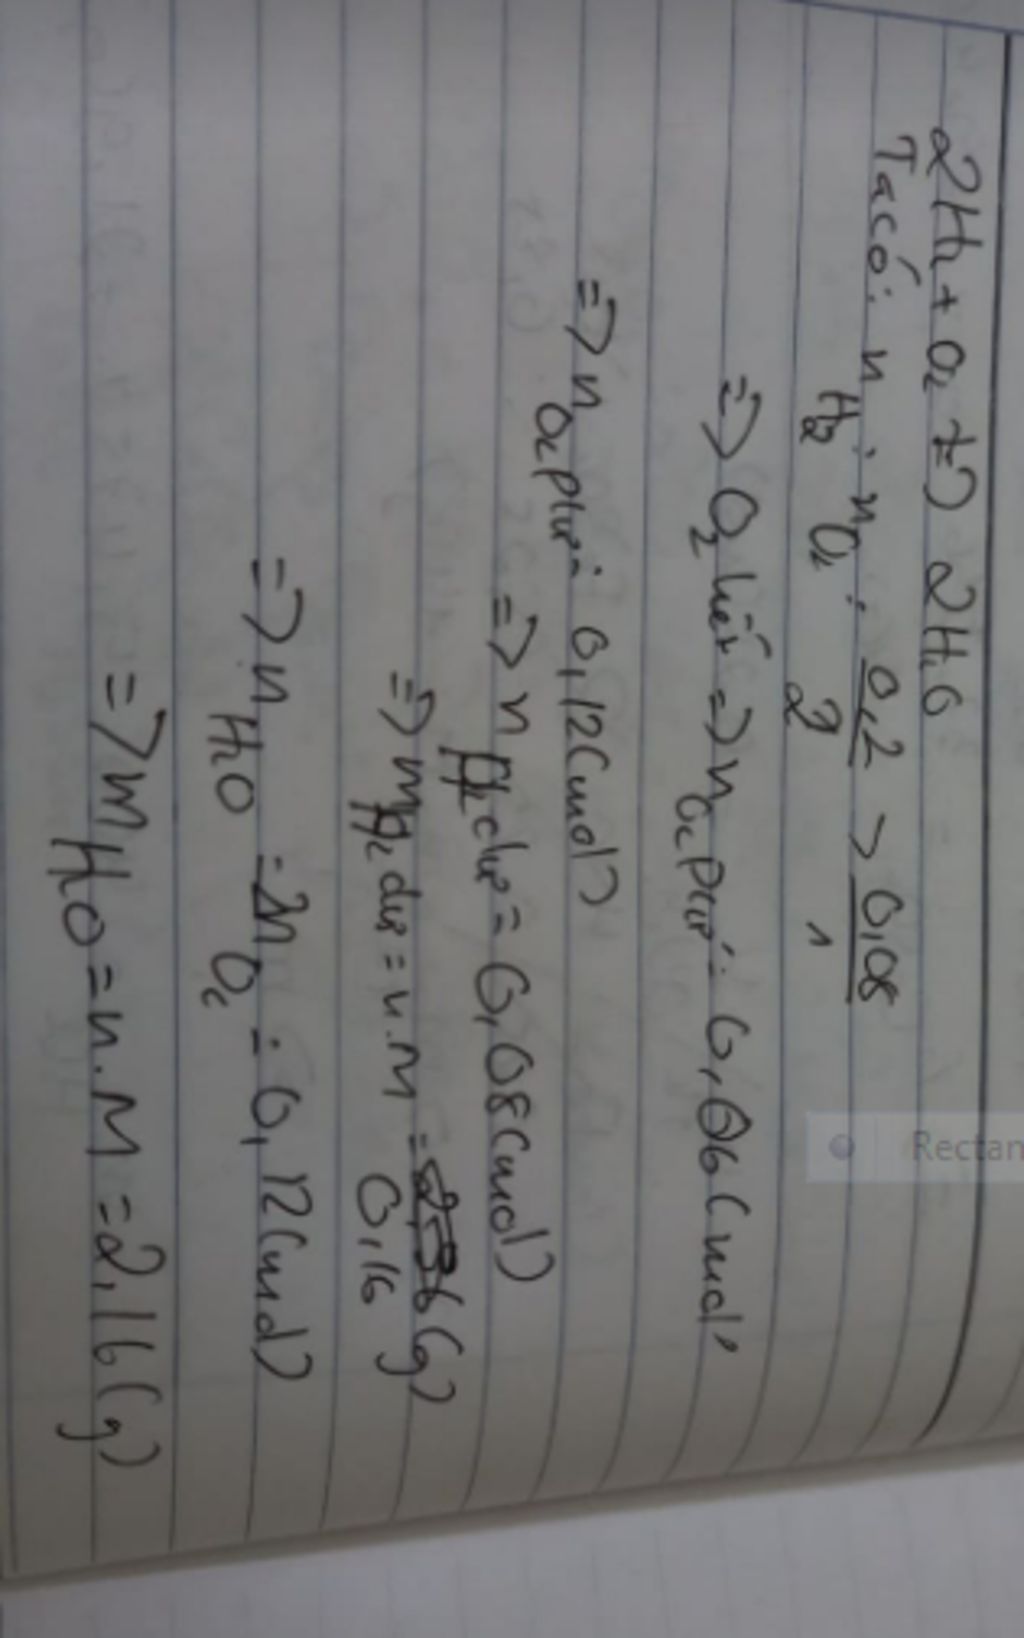 2H2 + O2 t=> 2H2O
Ta có: nH2 : nO2 : 0,2/2 > 0,08/1
=> O2 hết => nO2 pứ = 0,06 (mol)
=> nO2 pứ = 0,12 (mol)
=> nH2 dư = 0,08 (mol)
=> mH2 dư = n.M = (g)
0,16
=> nH2O = 2nO2 = 0,12 (mol)
=> mH2O = n.M = 2,16 (g)
Rectan